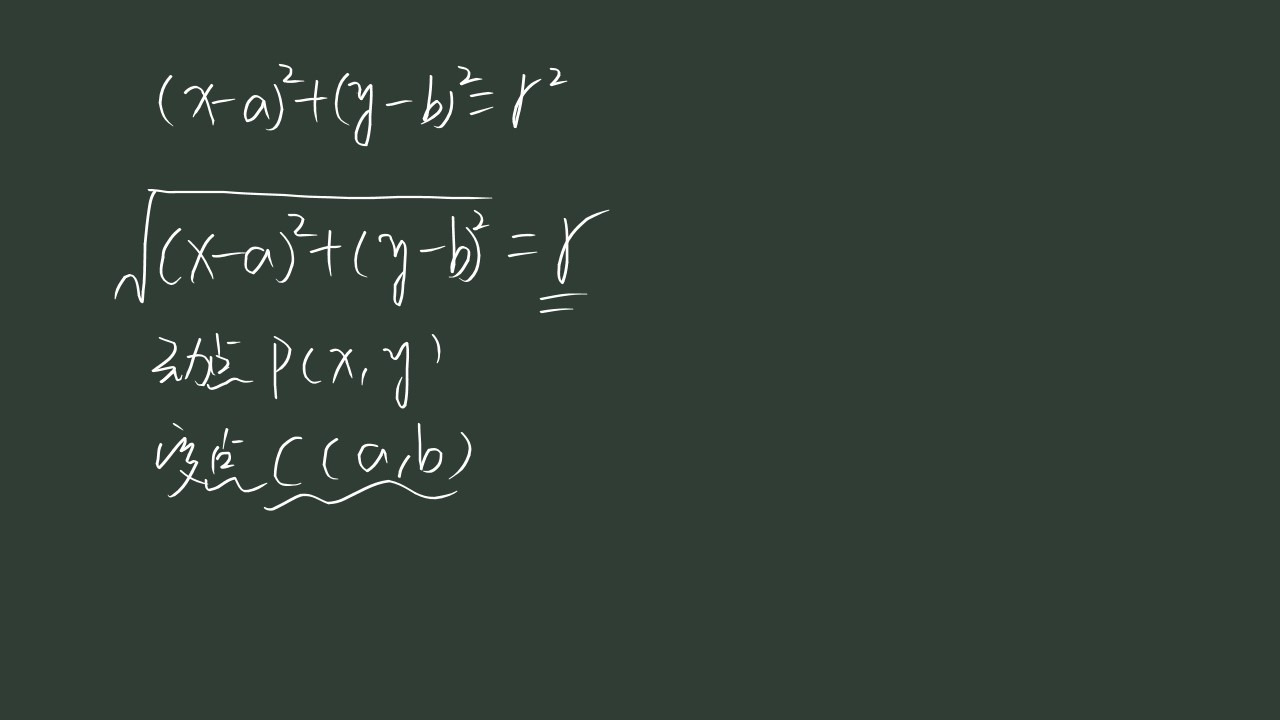 (x-a)²+(y-b)²=r²
√(x-a)²+(y-b)² = r
动点 P(x,y)
定点 C(a,b)